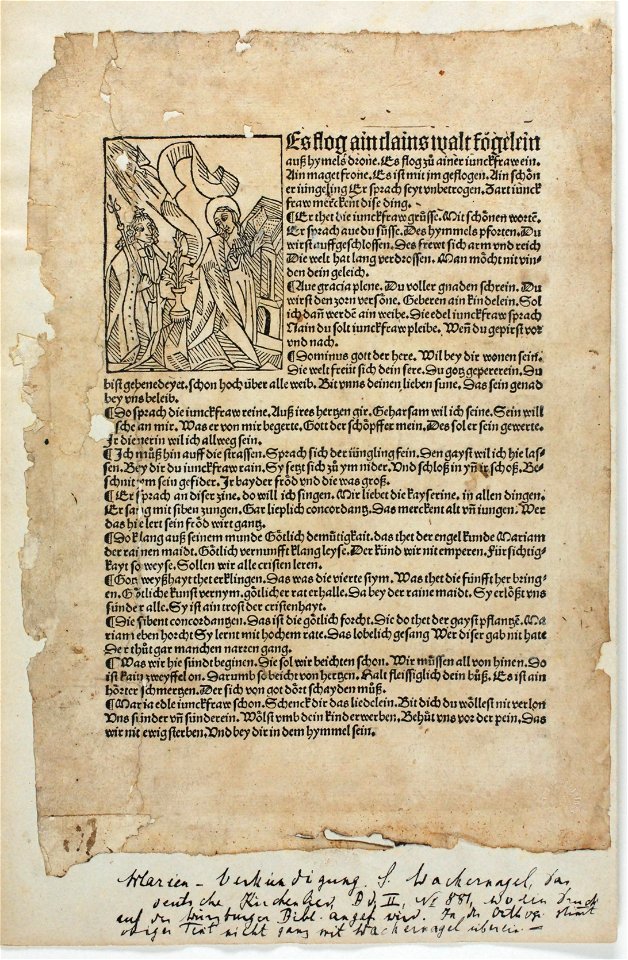 Es flog ain clains walt fögelein
auß hymels drone. Es flog zů ainer iunckfraw ein.
Ain maget frone. Es ist mit jm geflogen. Ain schön
er iüngeling Er sprach seyt vnbetrogen. Zart iunck
fraw merckent dise ding.
¶ Er thet die iunckfraw grüsse. Mit schönen wortē.
Er sprach aue du süsse. Des hymmels pforten. Du
wirst auffgeschlossen. Des frewt sich arm vnd reich
Die welt hat lang verdrossen. Man möcht nit vin-
den dein geleich.
¶ Aue gracia plene. Du voller gnaden schrein. Du
wirst den zorn versöne. Geberen ain kindelein. Sol
ich dañ werdē ain weibe. Die edel iunckfraw sprach
Nain du solt iunckfraw pleibe. Weñ du gepirst vor
vnd nach.
¶ Dominus gott der here. Wil bey dir wonen sein.
Die welt freüt sich dein sere. Du gotz gepererein. Du
bist gebenedeyet. schon hoch über alle weib. Bit vnns deinen lieben sune. Das sein genad
bey vns beleib.
¶ Do sprach die iunckfraw reine. Auß ires hertzen gir. Gehorsam wil ich seine. Sein will
sche an mir. Was er von mir begerte. Gott der schöpffer mein. Des sol er sein gewerte.
Jr dienerin wil ich allweg sein.
¶ Ich můß hin auff die strassen. Sprach sich der iüngling fein. Den gayst wil ich hie las-
sen. Bey dir du iunckfraw rain. Sy setzt sich zů ym nider. Vnd schloß in yñ ir schoß. Be-
schnit sein gefider. Jr bayder fröd vnd die was groß.
¶ Er sprach an diser zine. do will ich singen. Mir liebet die kayserine. in allen dingen.
Er sang mit siben zungen. Gar lieplich concordantz. Das merckent alt vñ iungen. Wer
das hie lert sein fröd wirt gantz.
¶ Do klang auß seinem munde Götlich demütigkait. das thet der engel kunde Mariam
der rainen maidt. Götlich vernunfft klang leyse. Der künd wir nit emperen. Fürsichtig-
kayt so weyse. Sollen wir alle cristen leren.
¶ Gotz weyßhayt thet erklingen. Das was die vierte stym. Was thet die fünfft her bring-
en. Götliche kunst vernym. götlicher rat erhalle. Da bey der raine maidt. Sy erlößt vns
sünder alle. Sy ist ain trost der cristenhayt.
¶ Die sibent concordantzen. Das ist die götlich forcht. Die do thet der gayst pflantzē. Ma
riam eben horcht Sy lernt mit hochem rate. Das lobelich gesang Wer diser gab nit hate
Der thüt gar manchen narren gang.
¶ Was wir hie sündt beginen. Die sol wir beichten schon. Wir müssen all von hinen. Do
ist kain zweyffel on. Darumb so beicht von hertzen. Halt fleissiglich dein büß. Es ist ain
hörter schmertzen. Der sich von got dört schayden můß.
¶ Maria edle iunckfraw schon. Schenck dir das liedelein. Bit dich du wöllest nit verlon
Vns sünder vñ sünderein. Wölst vmb dein kinderwerben. Behüt vns vor der pein. Das
wir nit ewig sterben. Vnd bey dir in dem hymmel sein.
Marien-Verkündigung. S. Wackernagel, das
deutsche Kirchenlied, Bd. II, No 881, wo ein Druck
auf der Würzburger Bibl. angef. wird. In der Orthogr. stimmt
obiger Text nicht ganz mit Wackernagel überein. —